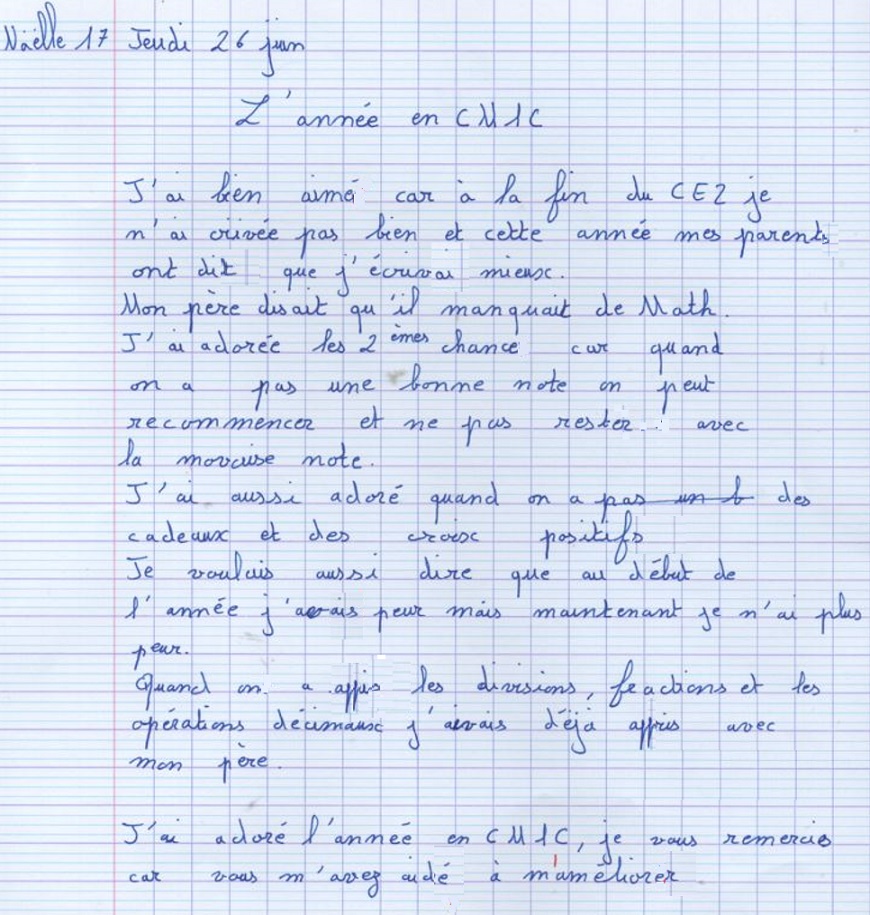 Naëlle 17 Jeudi 26 juin
L'année en CM1C
J'ai bien aimé car à la fin du CE2 je
n'ai crivée pas bien et cette année mes parents
ont dit que j'écrivai mieux.
Mon père disait qu'il manquait de Math.
J'ai adorée les 2 èmes chance car quand
on a pas une bonne note on peut
recommencer et ne pas rester avec
la movaise note.
J'ai aussi adoré quand on a pas un b des
cadeaux et des croix positifs
Je voulais aussi dire que au début de
l'année j'avais peur mais maintenant je n'ai plus
peur.
Quand on a appis les divisions, feactions et les
opérations décimaux j'avais déjà appris avec
mon père.
J'ai adoré l'année en CM1C, je vous remercie
car vous m'avez aidé à m'améliorer